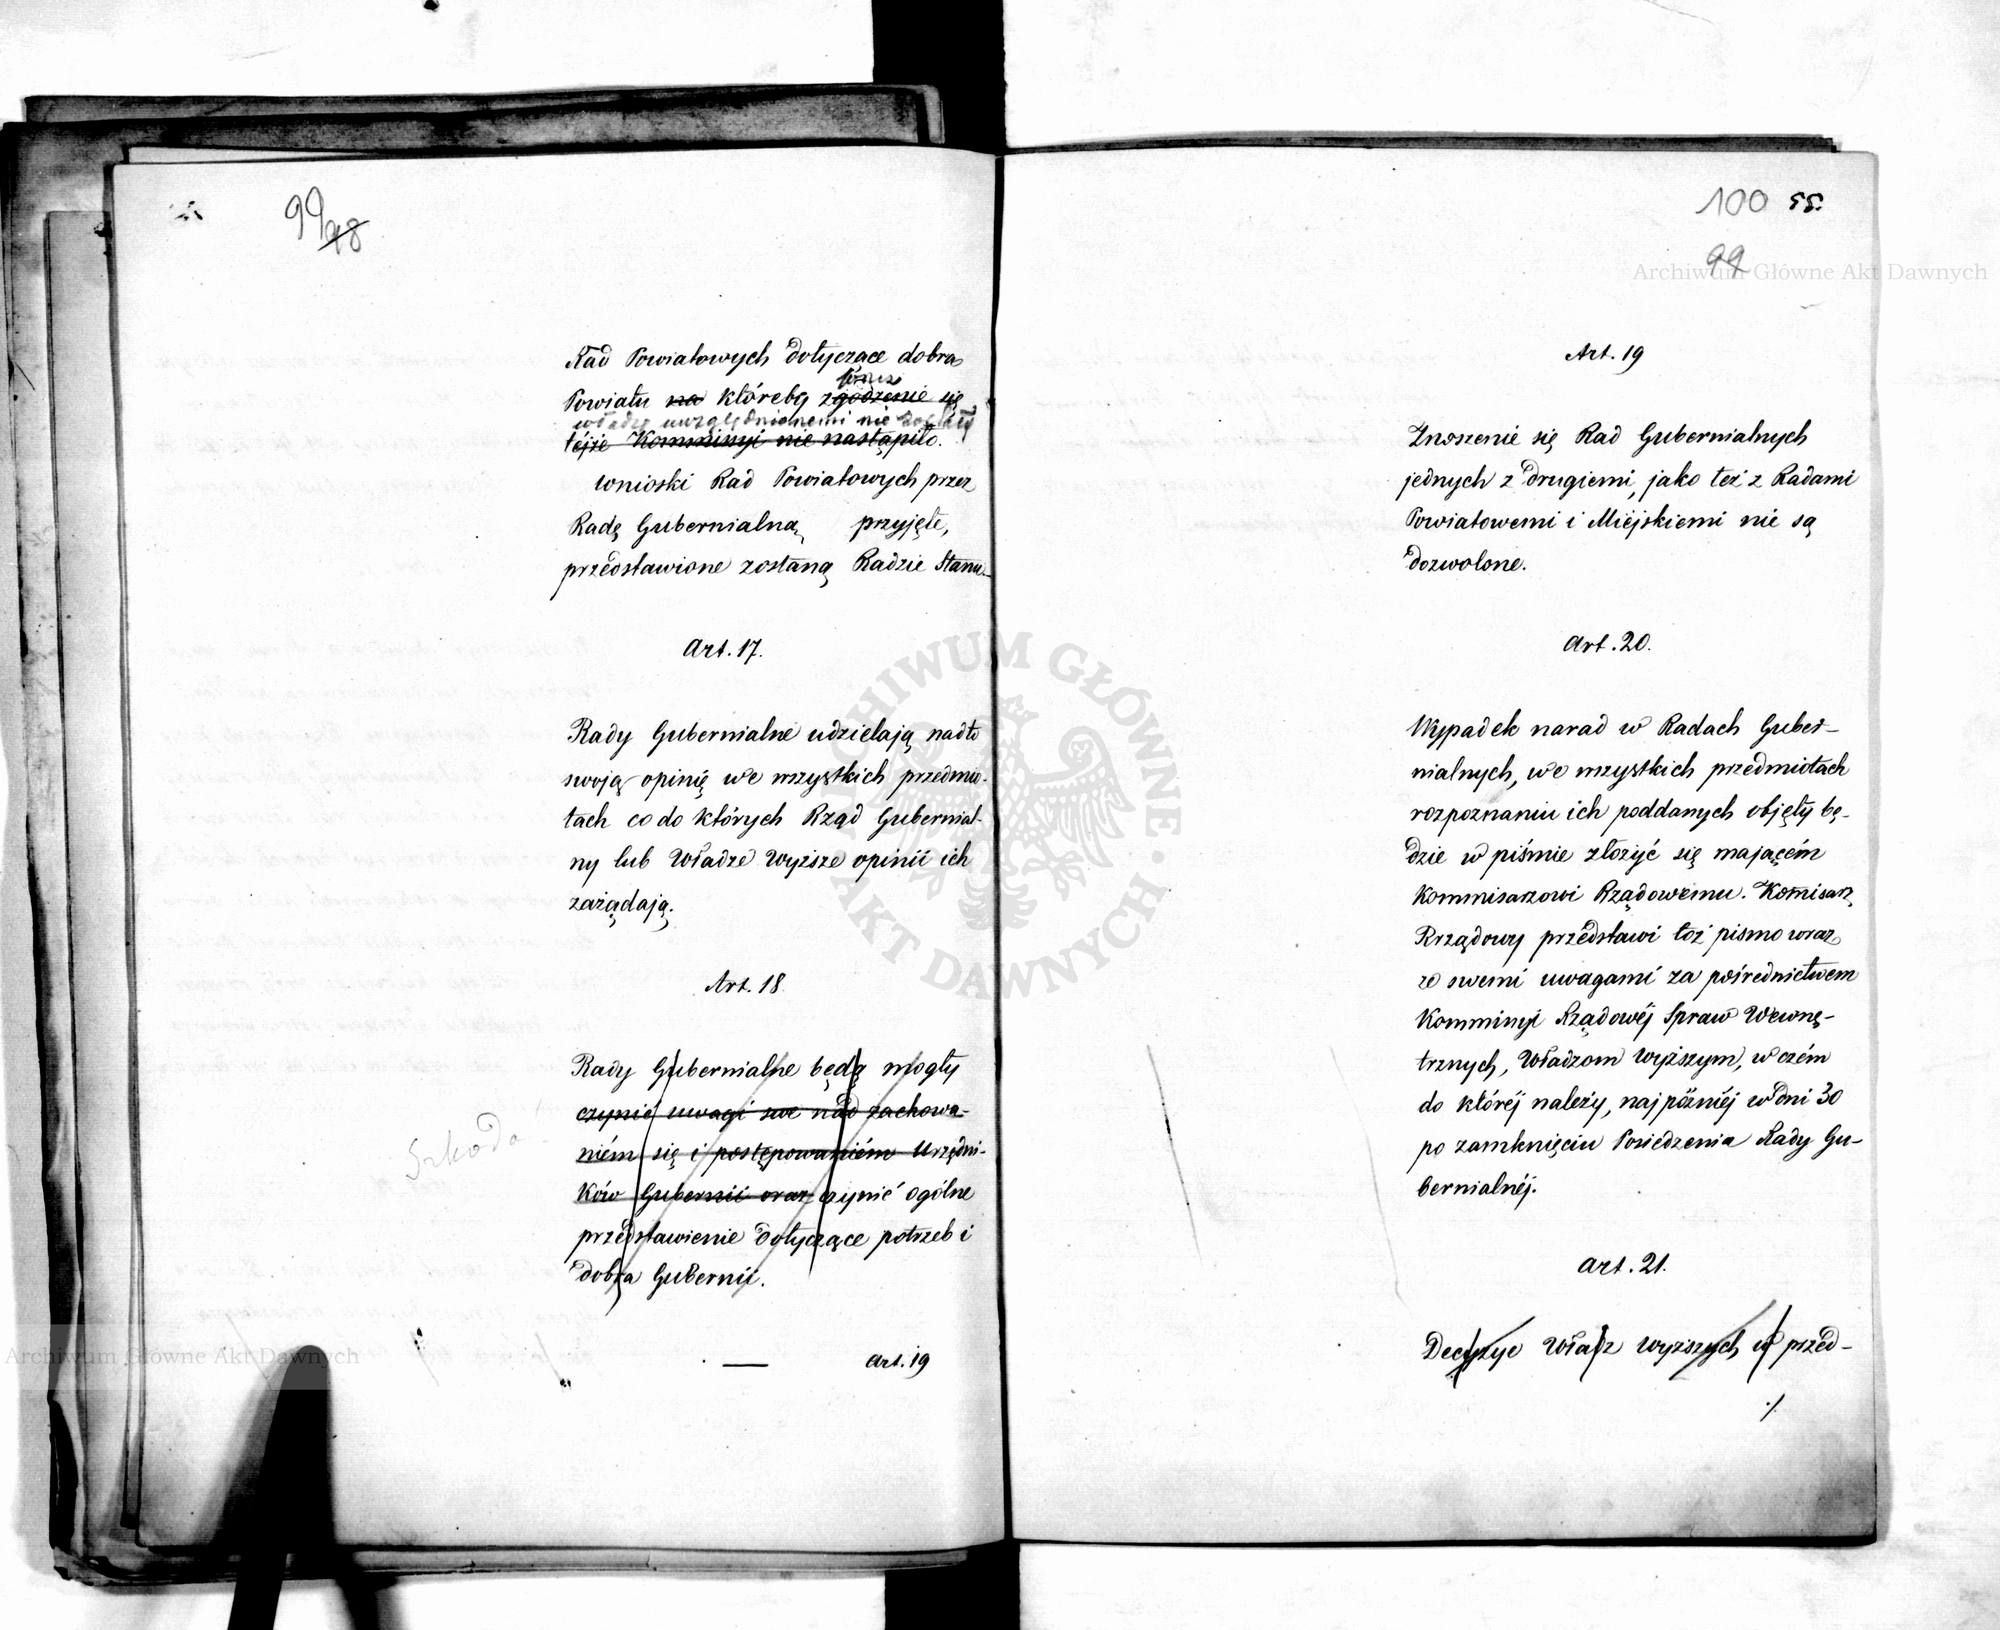 99
98
Rad Powiatowych dotyczące dobra
Powiatu na któreby zgodzenie się
przez
władzę uwzględnionemi nie zostały
tejże Kommissyi nie nastąpiło.
wnioski Rad Powiatowych przez
Radę Gubernialną przyjęte,
przedstawione zostaną Radzie Stanu
Art. 17.
Rady Gubernialne udzielają nadto
swoją opinię we wszystkich przedmio-
tach co do których Rząd Gubernial-
ny lub Władze Wyższe opinii ich
zażądają.
Art. 18
Rady Gubernialne będą mogły
czynić uwagi swe nad zachowa-
niém się i postępowaniém Urzędni-
ków Gubernii oraz czynić ogólne
przedstawienie dotyczące potrzeb i
dobra Gubernii.
Szkoda
Art. 19
100 55.
99
Art. 19
Znoszenie się Rad Gubernialnych
jednych z drugiemi, jako też z Radami
Powiatowemi i Miejskiemi nie są
dozwolone.
Art. 20.
Wypadek narad w Radach Guber-
nialnych, we wszystkich przedmiotach
rozpoznaniu ich poddanych objęty bę-
dzie w piśmie złożyć się mającém
Kommisarzowi Rządowemu. Komisarz
Rządowy przedstawi toż pismo wraz
ze swemi uwagami za pośrednictwem
Kommissyi Rządowéj Spraw Wewnę-
trznych, Władzom wyższym, w czém
do któréj należy, najpóźniéj w dni 30
po zamknięciu Posiedzenia Rady Gu-
bernialnéj.
Art. 21.
Decyzye Władz wyższych w przed-
./.
Archiwum Główne Akt Dawnych
Archiwum Główne Akt Dawnych
ARCHIWUM GŁÓWNE · AKT DAWNYCH ·